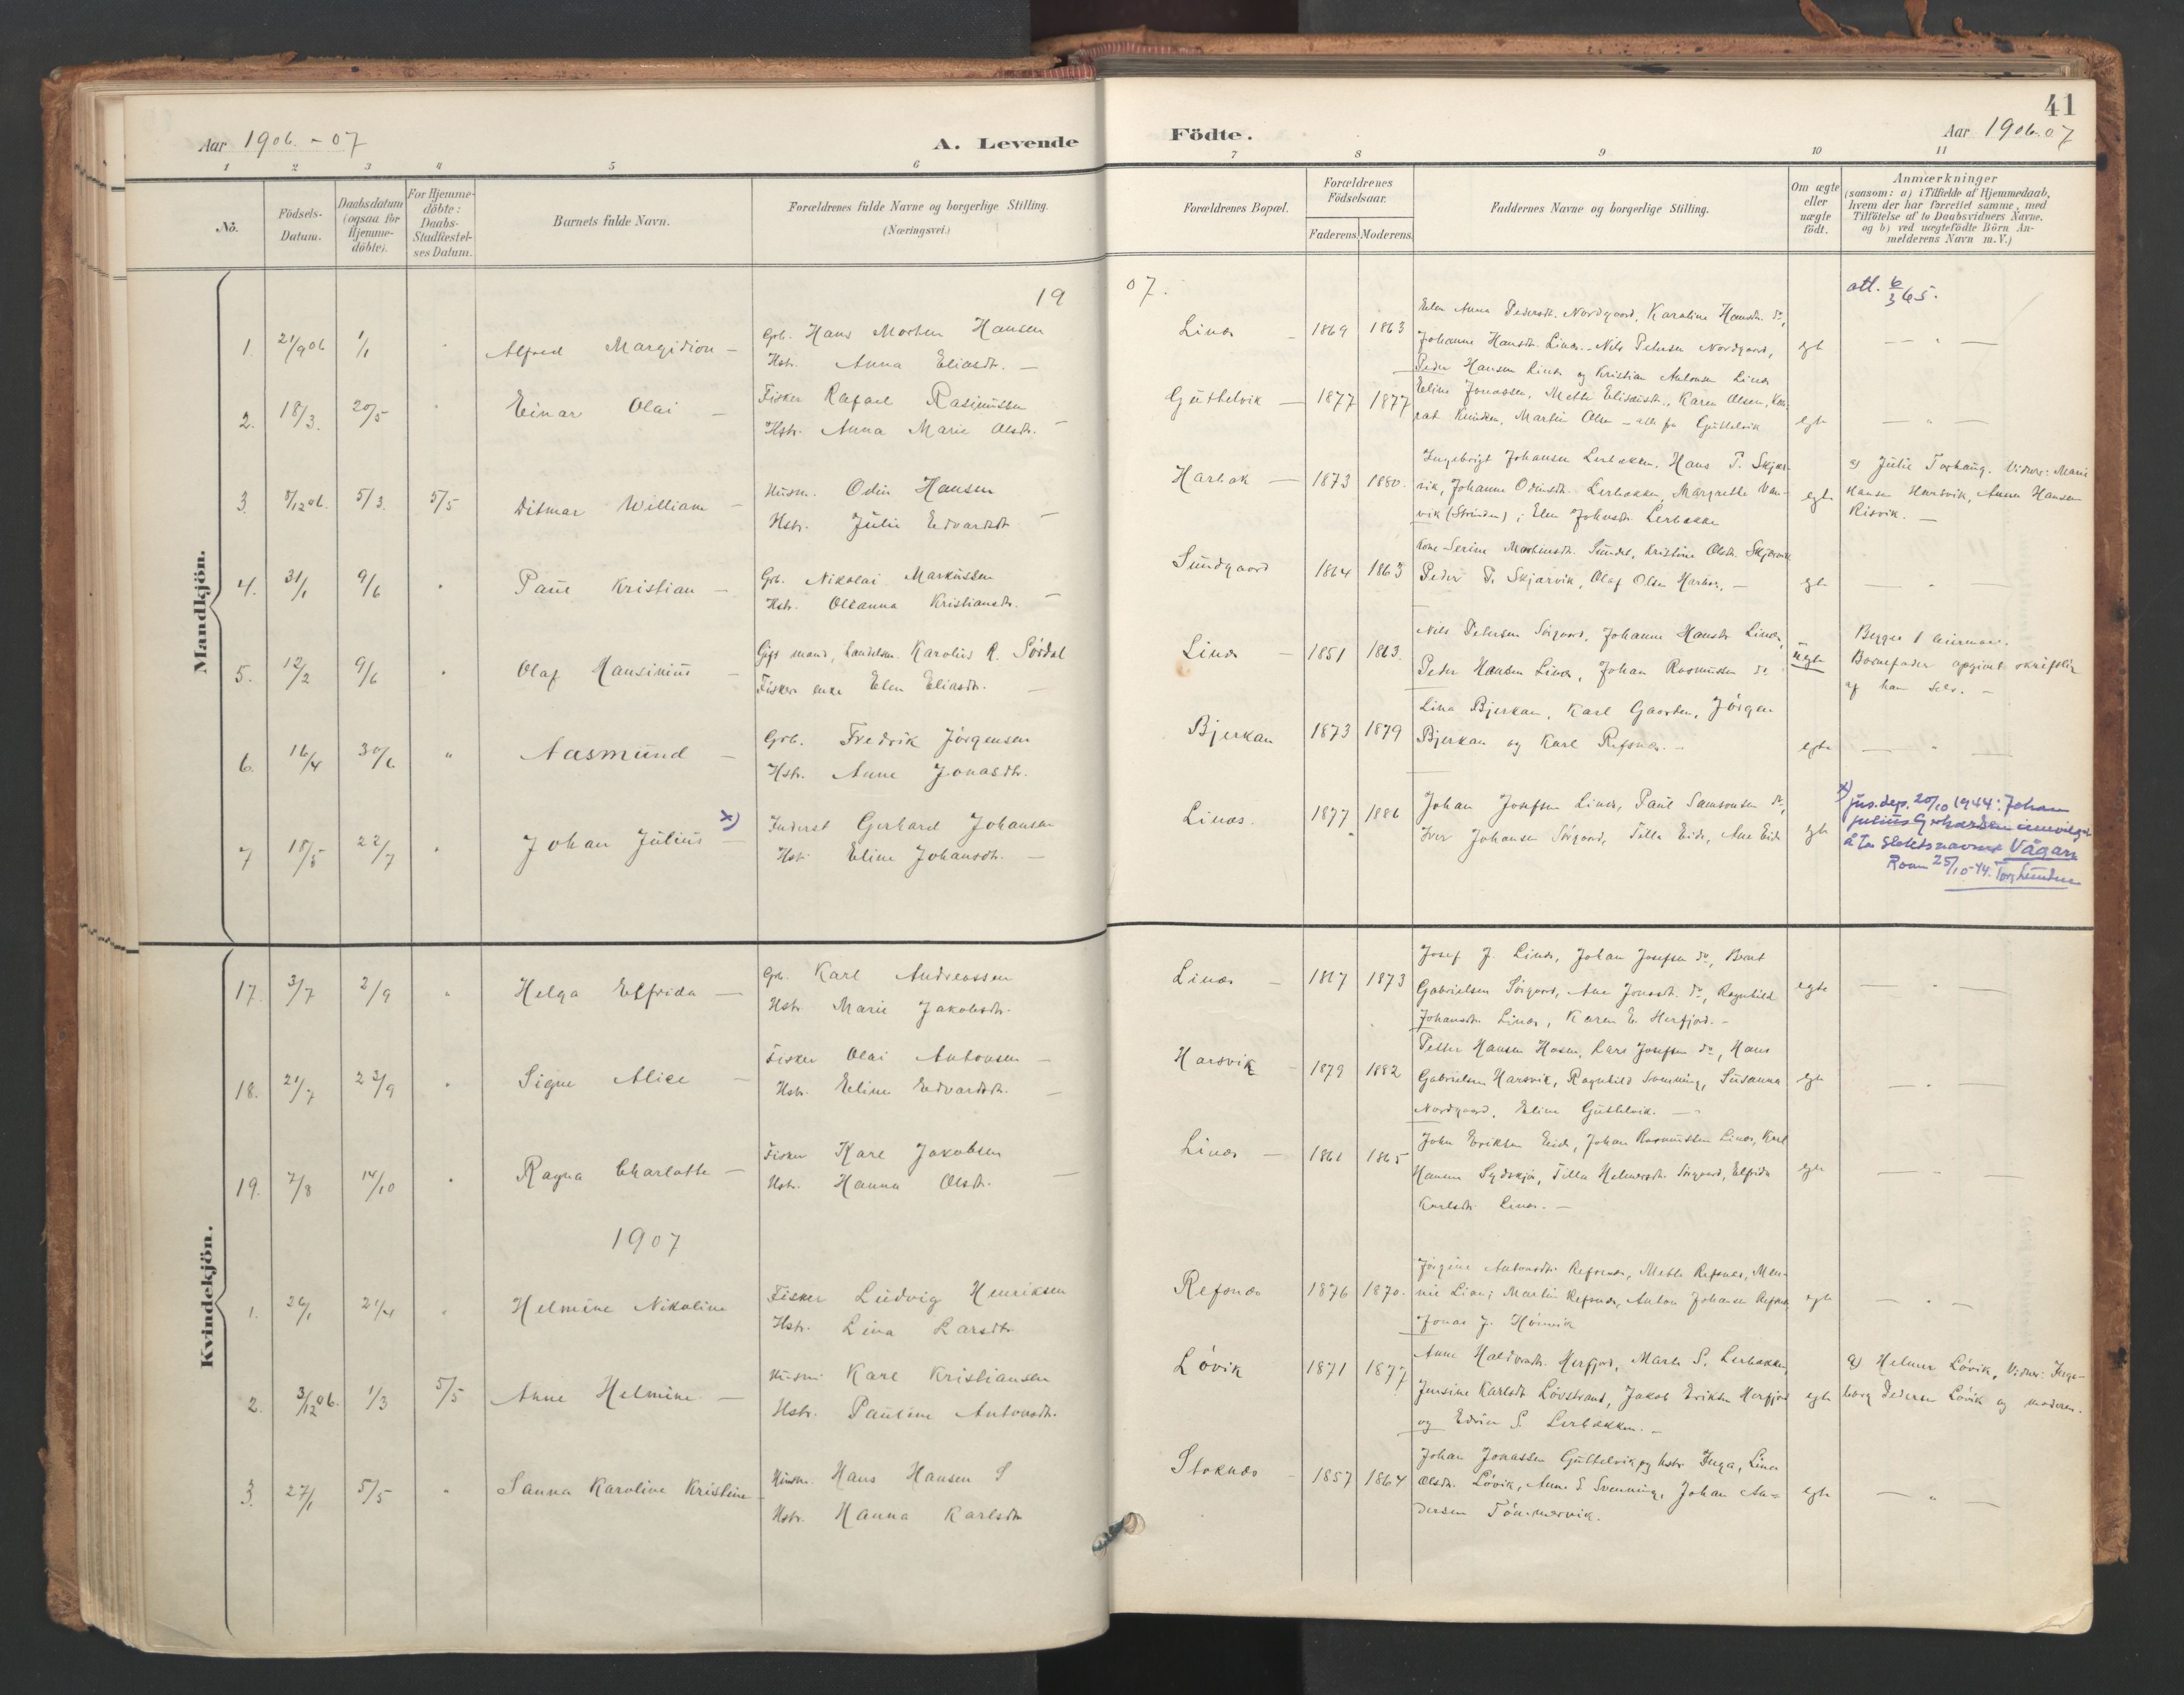 41
Aar 1906.-07
A. Levende
Födte.
Aar 1906.07
1 2 3 4 5 6 7 8 9 10 11
No.
Födsels-
Datum.
Daabsdatum
(ogsaa for
Hjemme-
döbte).
For Hjemme-
döbte:
Daabs-
Stadfæstel-
ses Datum.
Barnets fulde Navn.
Forældrenes fulde Navne og borgerlige Stilling.
(Næringsvei.)
Forældrenes Bopæl.
Forældrenes
Födselsaar.
Faderens. Moderens.
Faddernes Navne og borgerlige Stilling.
Om ægte
eller
uægte
födt.
Anmærkninger
(saasom: a) i Tilfælde af Hjemmedaab,
hvem der har forrettet samme, med
Tilföielse af to Daabsvidners Navne,
og b) ved uægtefödte Börn An-
melderens Navn m.V.)
Mandkjön.
19 07.
att. 6/3 65.
1. 21/9 06 1/1 " Alfred Margidion —
Grb. Hans Morten Hansen
Hstr. Anna Eliasdt. —
Linæs 1869 1863
Elen Anna Pedersdt. Nordgaard, Karoline Hansdt. do,
Johanne Hansdt. Linæs.. Nils Petersen Nordgaard,
Peder Hansen Linæs og Kristian Antonsen Linæs
egte — " —
2. 18/3. 20/5 " Einar Olai —
Fisker Rafael Rasmussen
Hstr. Anna Marie Olsdt. —
Guttelvik — 1877 1877
Eline Jonassen, Mette Eliasdt., Karen Olsen, Kon-
rat Knudsen, Martin Olsen — alle fra Guttelvik
egte — " —
3. 8/12 06. 5/3. 5/5 Ditmar William —
Husm. Odin Hansen
Hstr. Julie Edvardsdt —
Harbak — 1873 1880.
Ingebrigt Johansen Lerbakken, Hans P. Skjær-
vik, Johanne Odinsdt. Lerbakken, Margrethe Van-
vik (Strinden); Elen Johnsdt. Lerbakke
egte
a) Julie Torhaug. Vidner: Marie
Hansen Harsvik, Anna Hansen
Risvik. —
4. 31/1 9/6 " Paul Kristian —
Grb. Nikolai Markussen
Hstr. Oleanna Kristiansdt. —
Sundgaard 1864 1863
Kone Serine Martinsdt. Sundet, Kristine Olsdt. Skjærvik
Peder P. Skjærvik, Olaf Olsen Harbak. —
egte — " —
5. 12/2 9/6 " Olaf Hansinius —
Gift mand, Handelsm. Karolius R. Sørdal
Fisker enke Elen Eliasdt. —
Linæs — 1851 1863.
Nils Petersen Sørgaard, Johanne Hansdt Linæs,
Peder Hansen Linæs, Johan Rasmussen do.
uegte
Begges 1 leierm.
Barnefader opgivet skriftlig
af ham selv. —
6. 16/4 30/6 " Aasmund —
Grb. Fredrik Jørgensen
Hstr. Anne Jonasdt.
Bjerkan 1873 1879
Lina Bjerkan, Karl Gaarden, Jørgen
Bjerkan og Karl Refsnæs. —
egte — " —
7 18/5 22/7 " Johan Julius x)
Inderst Gerhard Johansen
Hst. Eline Johansdt. —
Linæs. 1877 1886
Johan Josefsen Linæs, Paul Samsonsen do,
Iver Johansen Sørgaard, Tilla Eide, Ane Eide
egte
x) jus.dep. 20/10 1944: Johan
Julius Gerhardsen innvilget
å ta slektsnavnet Vågan
Roan 25/10-44. Torg Lunden
Kvindekjön.
17. 3/7 2/9 " Helga Elfrida —
Grb. Karl Andreassen
Hst. Marie Jakobsdt.
Linæs — 1867 1873
Josef J. Linæs, Johan Josefsen do, Bernt
Gabrielsen Sørgaard, Ane Jonasdt. do, Ragnhild
Johansdt. Linæs, Karen E. Herfjord. —
egte — " —
18. 21/7 23/9 " Signe Alice —
Fisker Olai Antonsen —
Hstr. Eline Edvardsdt. —
Harsvik — 1879 1882
Petter Hansen Hosen, Lars Josefsen do, Hans
Gabrielsen Harsvik, Ragnhild Svenning, Susanna
Nordgaard, Eline Guttelvik. —
egte — " —
19. 7/8 14/10 " Ragna Charlotte —
Fisker Karl Jakobsen
Hstr. Hanna Olsdt. —
Linæs — 1861 1865
John Eriksen Eide, Johan Rasmussen Linæs, Karl
Hansen Sydskjør, Tilla Helmersdt. Sørgaard, Elfrida
Karlsdt. Linæs. —
egte — " —
1907
1. 26/1 21/4 " Helmine Nikoline
Fisker Ludvig Henriksen
Hstr. Lina Larsdt.
Refsnæs 1876 1870.
Jørgine Antonsdt. Refsnæs, Mette Refsnæs, Men-
nie Lian; Martin Refsnæs, Anton Johansen Refsnæs
Jonas J. Hönsvik
egte — " —
2. 3/12 06. 1/3 5/5 Anne Helmine —
Husm. Karl Kristiansen
Hstr. Pauline Antonsdt.
Løvik 1871 1877
Anne Haldorsdt. Herfjord, Marte S. Lerbakken,
Jensine Karlsdt Løvstrand, Jakob Eriksen Herfjord
og Edvin S. Lerbakken. —
egte
a) Helmer Løvik, Vidner: Inge-
borg Pedersen Løvik og moderen.
3. 27/1 5/5 " Sanna Karoline Kristine
Husm. Hans Hansen S
Hstr. Hanna Karlsdt
Stoknæs — 1857 1864
Johan Jonassen Guttelvik og hstr Inga, Lina
Olsdt. Løvik, Anne E Svenning, Johan An-
dersen Tömmervik.
egte — " —